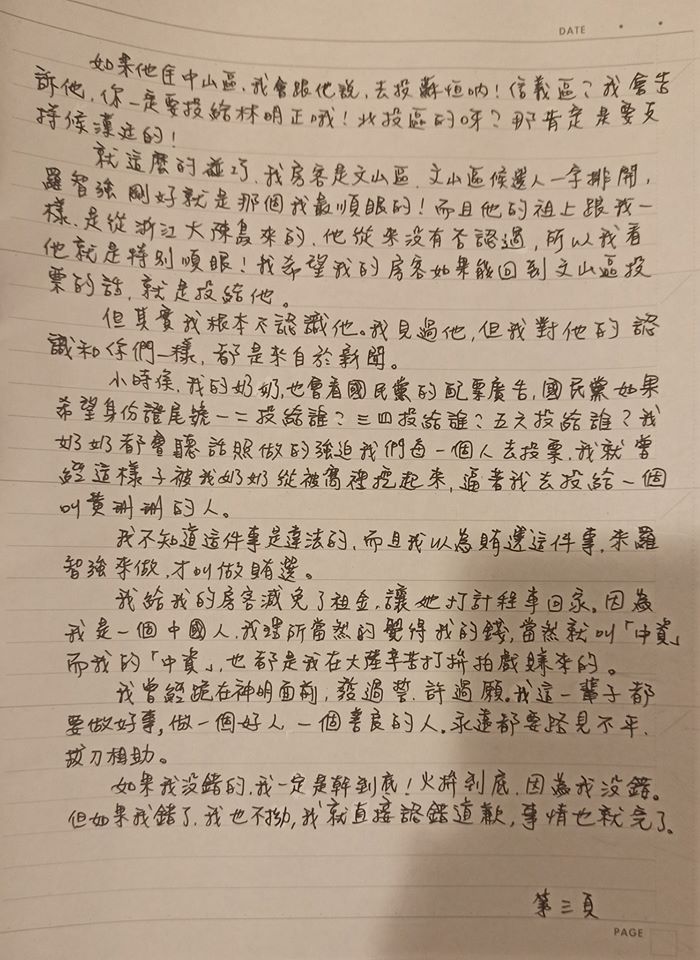 DATE
如果他住中山區,我會跟他說,去投蘇恒吶!信義區?我會告
訴他,你一定要投給林明正哦!北投區的呀?那肯定是要支
持侯漢廷的!
就這麼的碰巧,我房客是文山區,文山區候選人一字排開,
羅智強剛好就是那個我最順眼的!而且他的祖上跟我一
樣,是從浙江大陳島來的,他從來沒有否認過,所以我看
他就是特別順眼!我希望我的房客如果能回到文山區投
票的話,就是投給他。
但其實我根本不認識他。我見過他,但我對他的認
識和你們一樣,都是來自於新聞。
小時候,我的奶奶,也會看國民黨的配票廣告,國民黨如果
希望身份證尾號一二投給誰?三四投給誰?五六投給誰?我
奶奶都會聽話照做的強迫我們每一個人去投票,我就曾
經這樣子被我奶奶從被窩裡挖起來,逼著我去投給一個
叫黃珊珊的人。
我不知道這件事是違法的,而且我以為賄選這件事,朱羅
智強來做,才叫做賄選。
我給我的房客減免了租金,讓她打計程車回家。因為
我是一個中國人,我理所當然的覺得我的錢,當然就叫「中資」
而我的「中資」,也都是我在大陸辛苦打拚拍戲賺來的。
我曾經跪在神明面前,發過誓,許過願。我這一輩子都
要做好事,做一個好人一個善良的人。永遠都要路見不平、
拔刀相助。
如果我沒錯的,我一定是幹到底!火拚到底,因為我沒錯。
但如果我錯了,我也不拗,我就直接認錯道歉,事情也就完了。
第三頁
PAGE